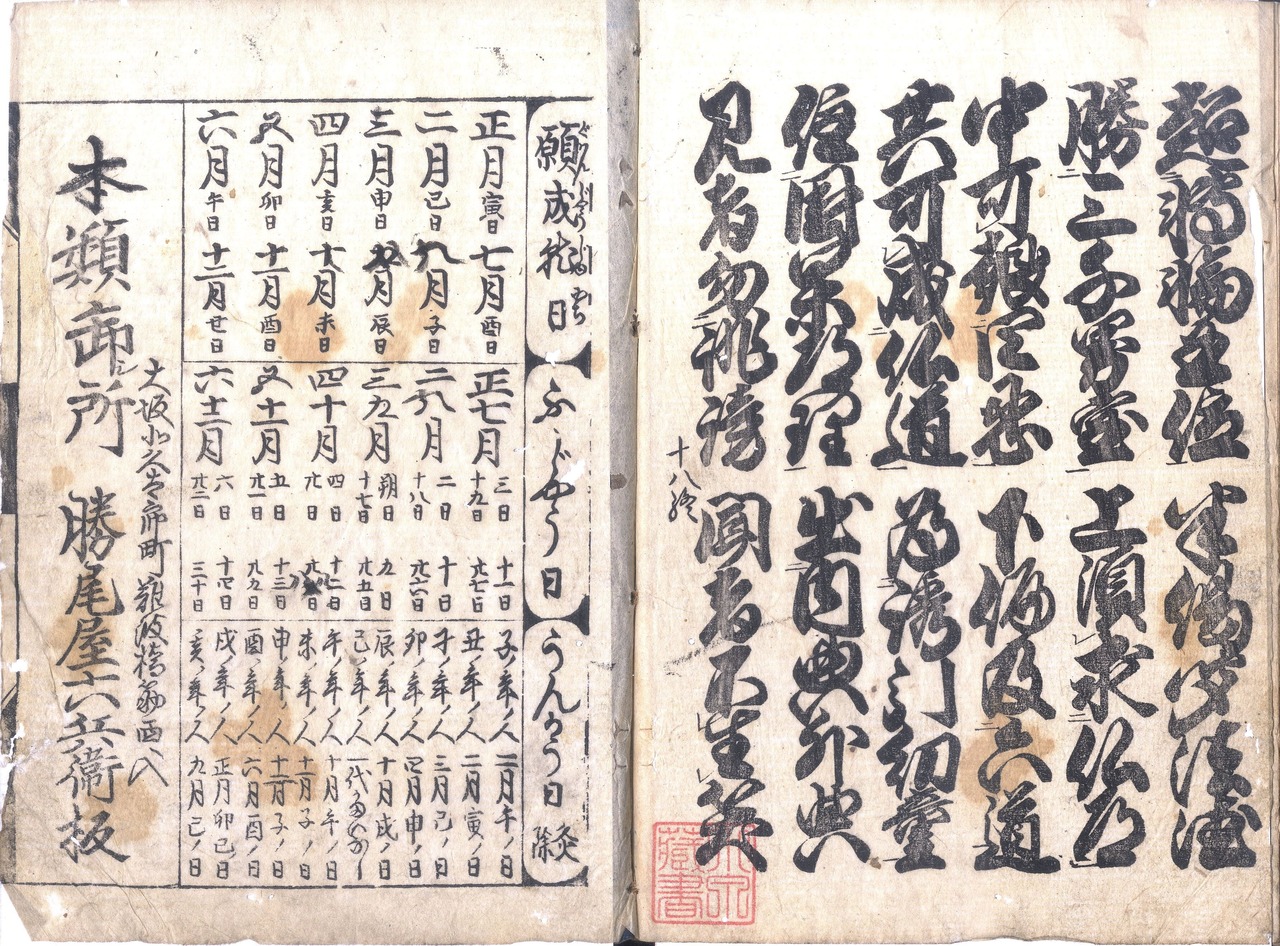 超轉輪王位 半偈聞法德
勝三千界宝 上須求仏道
中可報四恩 下徧及六道
共可成仏道 為誘引幼童
註因果道理 出内典外典
見者勿誹謗 聞者不生笑
十八終
願成就日
ぐわんじやうじゆにち
正月寅日 七月酉日
二月巳日 八月子日
三月申日 九月辰日
四月亥日 十月未日
五月卯日 十一月酉日
六月午日 十二月廿日
ふじやう日
正七月 三日 十一日 十九日 廿七日
二八月 二日 十日 十八日 廿六日
三九月 朔日 九日 十七日 廿五日
四十月 四日 十二日 廿日
五十一月 五日 十三日 廿一日 廿九日
六十二月 六日 十四日 廿二日 三十日
うんかう日 灸除
子ノ年ノ人 二月午ノ日
丑ノ年ノ人 二月寅ノ日
寅ノ年ノ人 三月巳ノ日
卯ノ年ノ人 四月申ノ日
辰ノ年ノ人 十月戌ノ日
巳ノ年ノ人
午ノ年ノ人 十月午ノ日
未ノ年ノ人 十一月子ノ日
申ノ年ノ人 十二月子ノ日
酉ノ年ノ人 六月酉ノ日
戌ノ年ノ人 正月卯巳日
亥ノ年ノ人 九月巳ノ日
大坂北久太郎町難波橋筋西ヘ入
本類卸シ所 勝尾屋六兵衛板
藏書